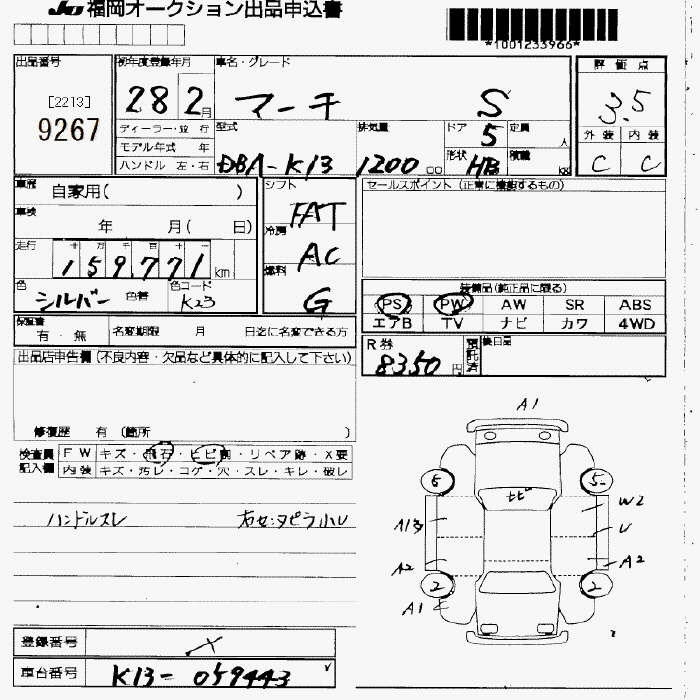 JU 福岡オークション出品申込書
*1001233966*
出品番号
[2213]
9267
初年度登録年月
28 2月
車名・グレード
マーチ S
評価点
3.5
外装 内装
C C
ディーラー・並行
モデル年式 年
ハンドル 左・右
型式
DBA-K13
排気量
1200 cc
ドア
5
形状
HB
定員
人
積載
kg
車歴
自家用( )
車検
年 月( 日)
走行
十 万 千 百 十 一
159,771 km
色
シルバー 色替
色コード
K23
シフト
FAT
冷房
AC
燃料
G
セールスポイント (正常に機能するもの)
装備品(純正品に限る)
PS PW AW SR ABS
エアB TV ナビ カワ 4WD
保証書
有・無
名変期限 月 日迄に名変できる方
R券
8350 円
預託済
後日品
出品店申告欄(不良内容・欠品など具体的に記入して下さい)
修復歴 有 (箇所 )
検査員記入欄
FW キズ・飛石・ヒビ割・リペア跡・X要
内装 キズ・汚レ・コゲ・穴・スレ・キレ・破レ
ハンドルスレ
A1
6 5
ヒビ
W2
A13
U
A2 A2
2 2
A1
登録番号
車台番号
K13-059443